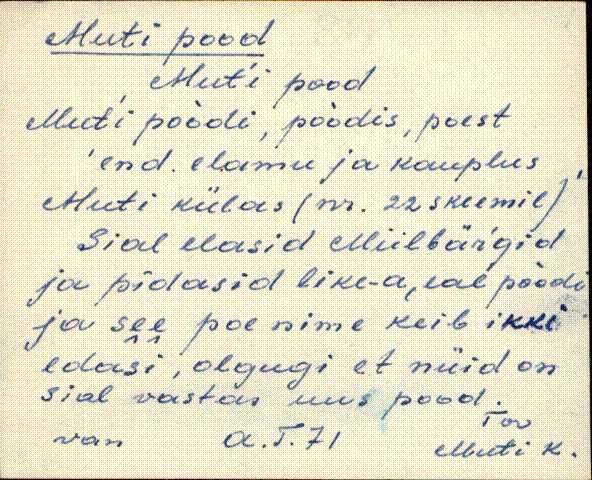 Muti pood
Mut'i pood
Mut'i pòòdi, pòòdis, poest
end. elamu ja kauplus
Muti külas (nr. 22 skeemil)
Sial elasid Miilbär'gid
ja pidasid like-a, eal pòòdi
ja see poe nime keib ikki
edasi, olgugi et nüid on
sial vastas uus pood.
Tov
van A.T.71 Muti k.